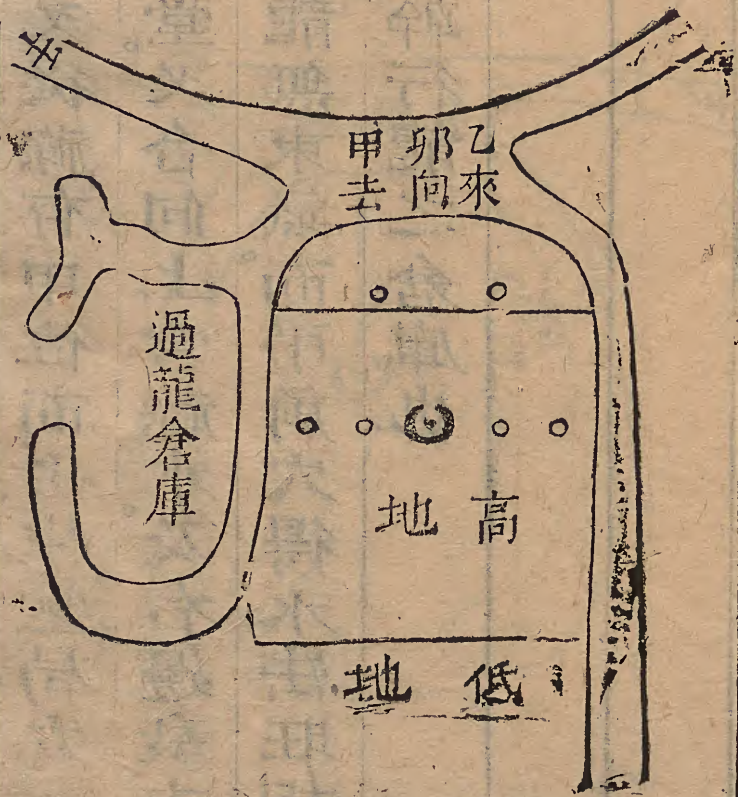 乙來
卯向
甲去
過龍倉庫
高地
低地